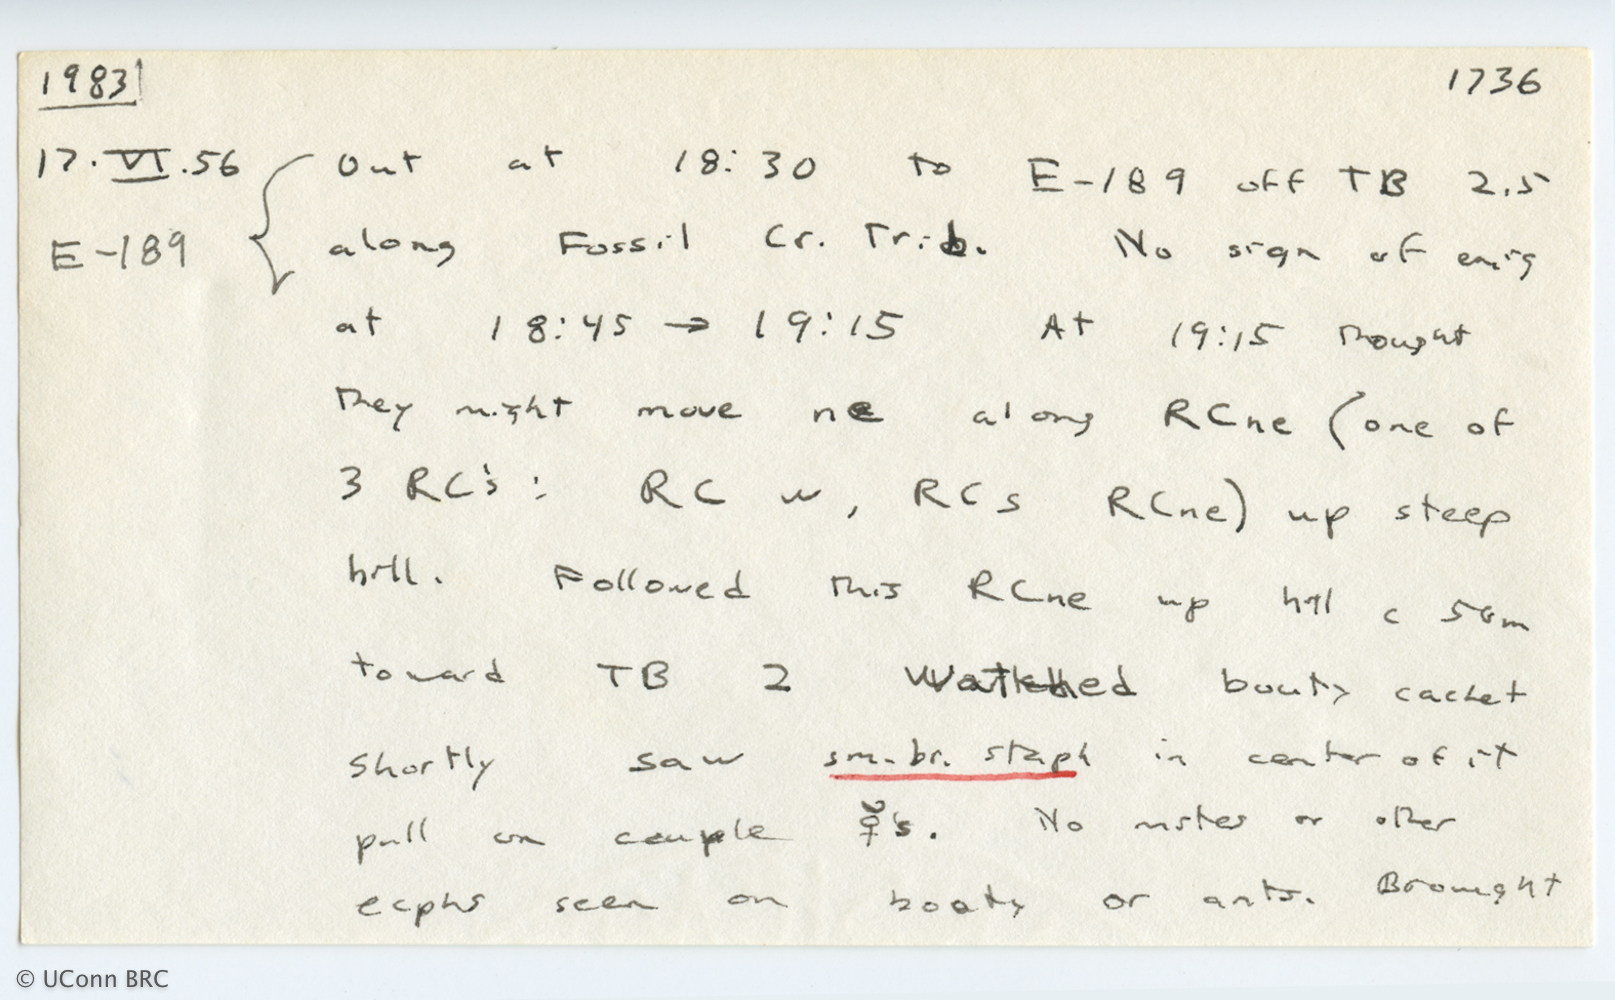 1983 1736
17.VI.56 Out at 18:30 to E-189 off TB 2.5
E-189 along Fossil Cr. Trib. No sign of emig
at 18:45 → 19:15 At 19:15 thought
they might move ne along RCne (one of
3 RC's: RC w, RCs RCne) up steep
hill. Followed this RCne up hill c 50m
toward TB 2 Watched booty cachet
shortly saw sm. br. staph in center of it
pull on couple ☿'s. No mites or other
ecphs seen on booty or ants. Brought
© UConn BRC